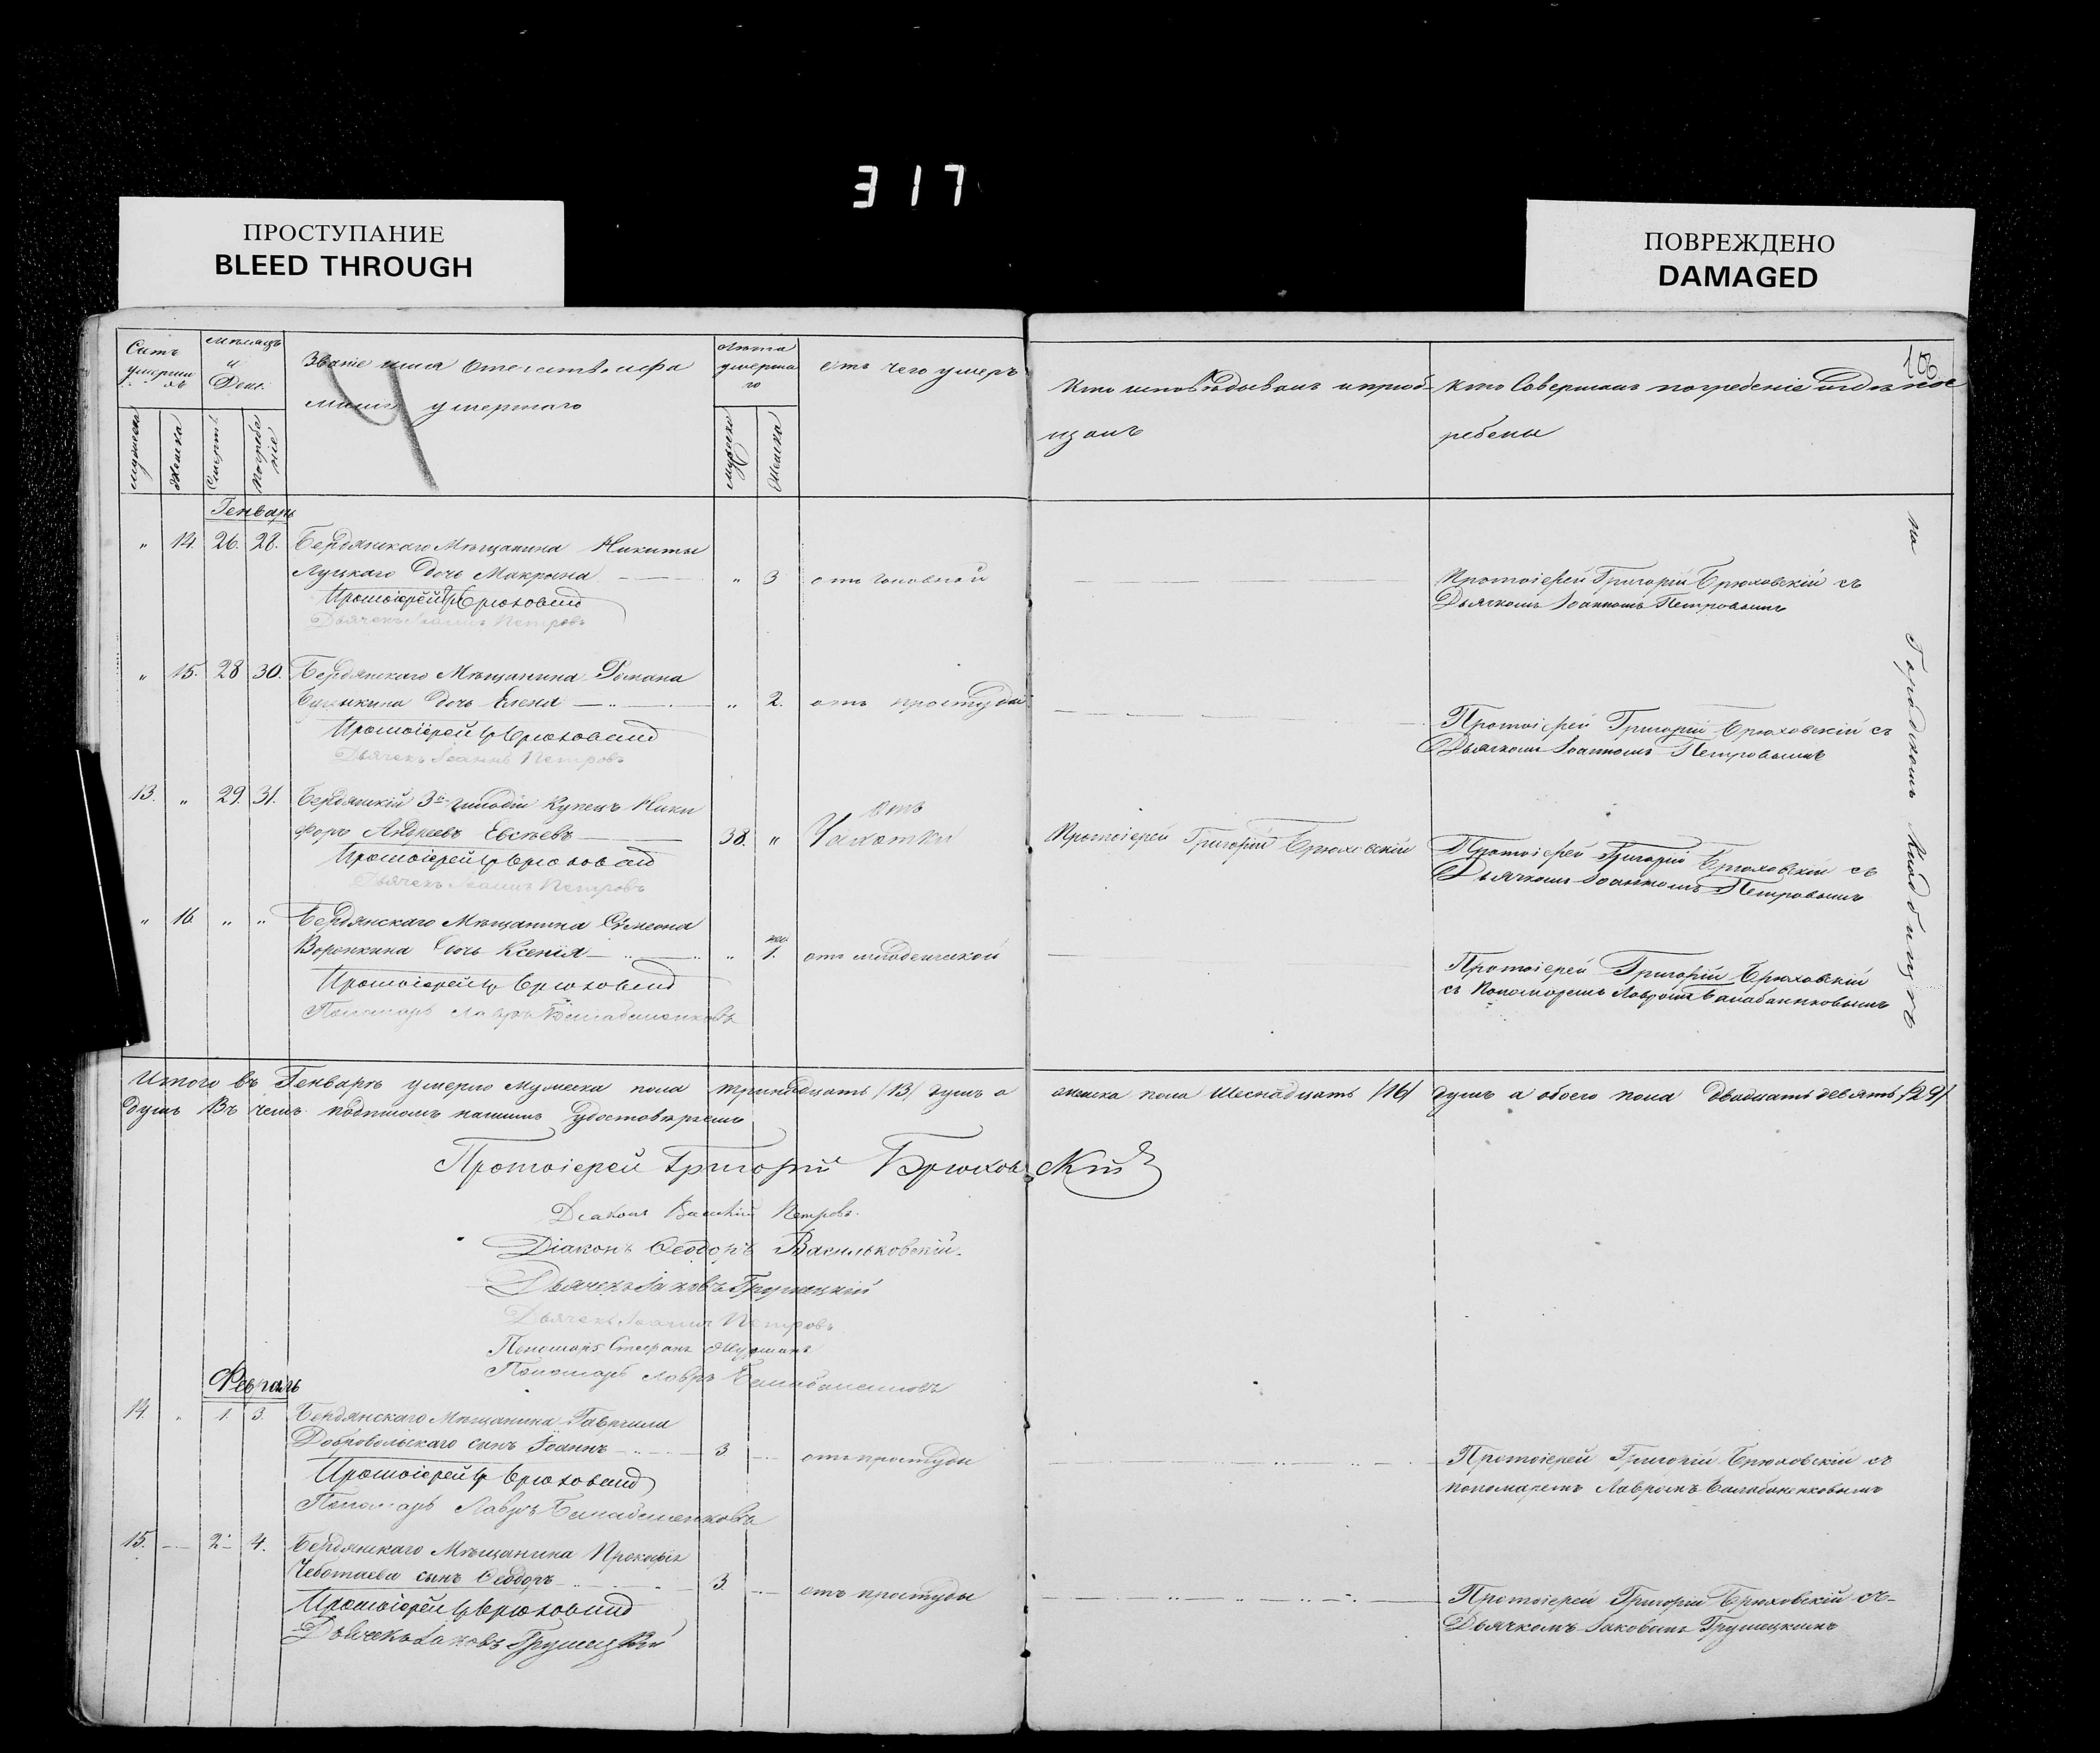 317
ПРОСТУПАНИЕ
BLEED THROUGH
ПОВРЕЖДЕНО
DAMAGED
106
Счетъ умершихъ
Мѣсяцъ и День
Званіе имя отечество и фа
милія умершаго
Лѣта умершаго
отъ чего умеръ
Кто исповѣдывалъ и пріоб
щалъ
Кто Совершалъ погребеніе и гдѣ пог
ребены
мужеска
женска
Смерти
Погребенія
мужеска
женска
Генварь
" 14. 26. 28. Бердянскаго Мѣщанина Никиты
Луцкаго Дочь Макрина " 3 отъ головной
Протоіерей Гр Брюховскій
Дьячекъ Іоаннъ Петровъ
Протоіерей Григорій Брюховскій съ
Дьячкомъ Іоанномъ Петровымъ
" 15. 28 30. Бердянскаго Мѣщанина Романа
дочь Елена " 2. отъ простуды
Протоіерей Гр Брюховскій
Дьячекъ Іоаннъ Петровъ
Протоіерей Григорій Брюховскій съ
Дьячкомъ Іоанномъ Петровымъ
13. " 29. 31. Бердянскій 3й гильдіи Купецъ Ники
форъ Андреевъ Евсѣевъ 38. " отъ Чахотки
Протоіерей Гр Брюховскій
Дьячекъ Іоаннъ Петровъ
Протоіерей Григорій Брюховскій
Протоіерей Григорій Брюховскій съ
Дьячкомъ Іоанномъ Петровымъ
" 16. " " Бердянскаго Мѣщанина Симеона
Воронкина Дочь Ксенія " 1. отъ младенческой
Протоіерей Гр Брюховскій
Пономарь Лавръ Балабаненковъ
Протоіерей Григорій Брюховскій
съ Пономаремъ Лавромъ Балабаненковымъ
на Городскомъ Кладбищѣ
Итого въ Генварѣ умерло мужеска пола тринадцать /13/ душъ а женска пола Шеснадцать /16/ душъ а обоего пола двадцать девять /29/
душъ Въ чемъ подписомъ нашимъ Удостовѣряемъ
Протоіерей Григорій Брюховскій
Діаконъ Василій Петровъ.
Діаконъ Ѳеодоръ Васильковскій.
Дьячекъ Іаковъ Грушецкій
Дьячекъ Іоаннъ Петровъ
Пономарь Стефанъ
Пономарь Лавръ Балабаненковъ
Февраль
14. " 1. 3. Бердянскаго Мѣщанина Гавріила
Добровольскаго сынъ Іоаннъ 3 отъ простуды
Протоіерей Гр Брюховскій
Пономарь Лавръ Балабаненковъ
Протоіерей Григорій Брюховскій съ
пономаремъ Лавромъ Балабаненковымъ
15. 2. 4. Бердянскаго Мѣщанина Прокофія
Чеботаева сынъ Ѳеодоръ 3. отъ простуды
Протоіерей Гр Брюховскій
Дьячекъ Іаковъ Грушецкій
Протоіерей Григорій Брюховскій съ
Дьячкомъ Іаковымъ Грушецкимъ